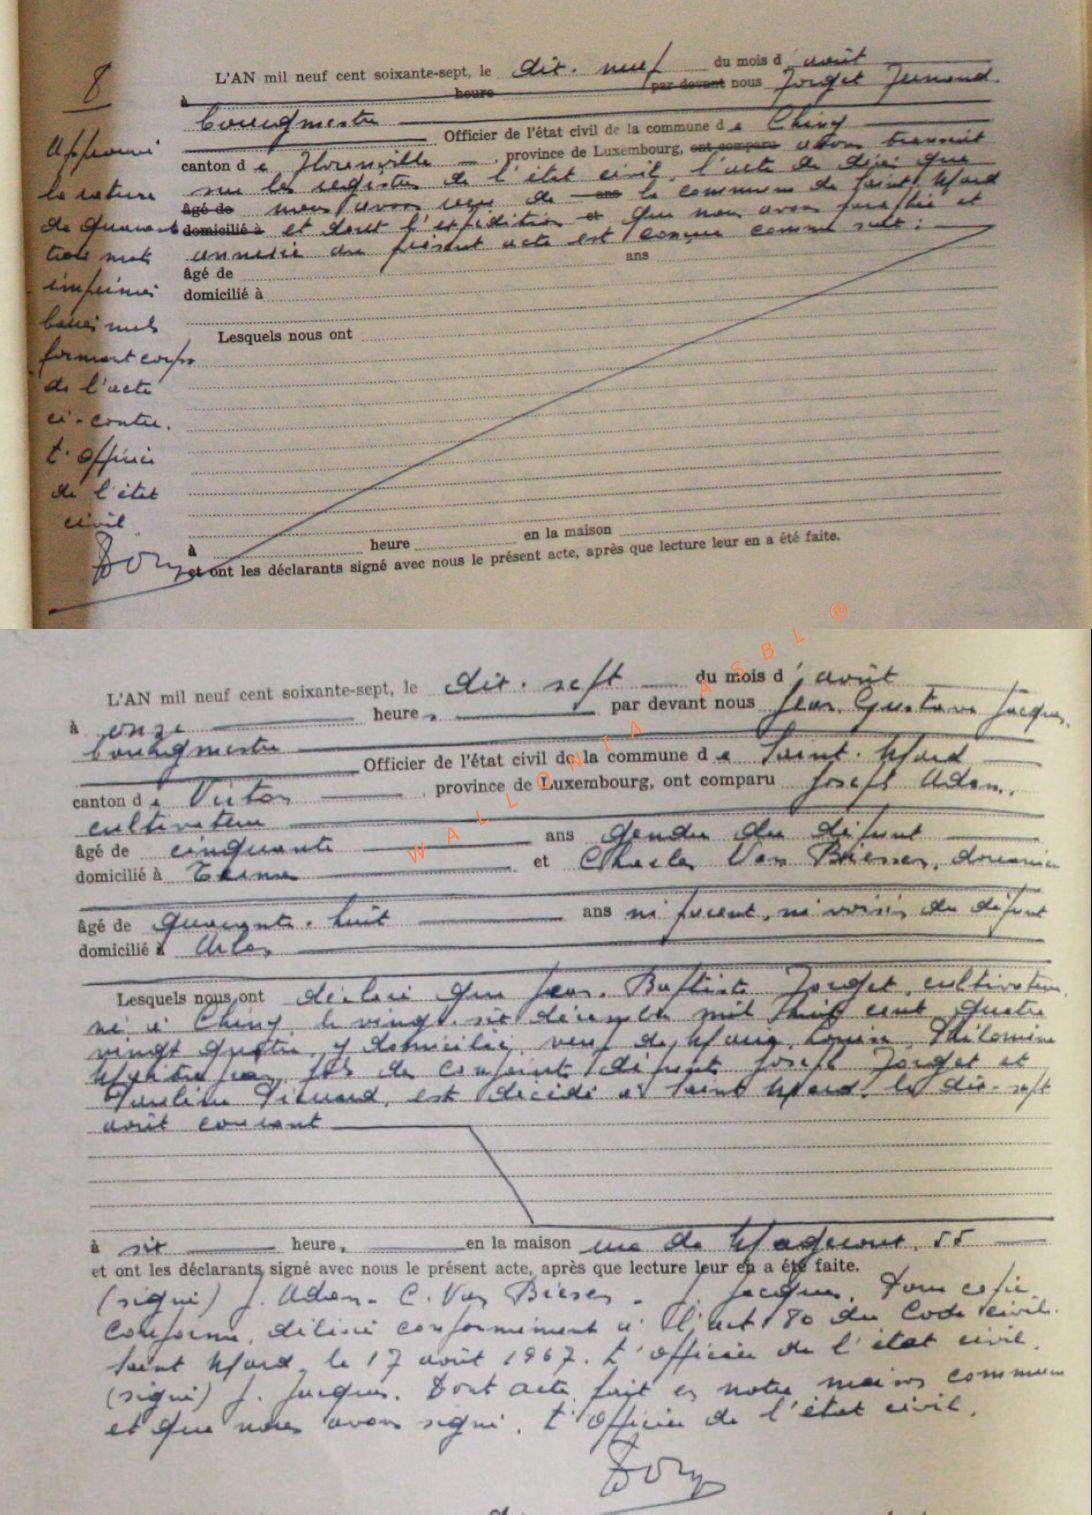 8
L'AN mil neuf cent soixante-sept, le dix-neuf du mois d'août
à heure par devant nous Forget Fernand
bourgmestre
Officier de l'état civil de la commune de Chiny
canton de Florenville province de Luxembourg, ont comparu avons transcrit
sur les registres de l'état civil, l'acte de décès que
âgé de nous avons reçu de ans la commune de Saint-Mard
domicilié à et dont l'expédition et que nous avons paraphée et
annexée au présent acte est conçue comme suit :
âgé de ans
domicilié à
Lesquels nous ont
à heure en la maison
et ont les déclarants signé avec nous le présent acte, après que lecture leur en a été faite.
Approuvé
la rature
de quarante
trois mots
imprimés
barrés nuls
formant corps
de l'acte
ci-contre.
L'officier
de l'état
civil
WALLONIA ASBL ®
L'AN mil neuf cent soixante-sept, le dix-sept du mois d'août
à onze heure, par devant nous Jean Gustave Jacques,
bourgmestre
Officier de l'état civil de la commune de Saint-Mard
canton de Virton province de Luxembourg, ont comparu Joseph Adam,
cultivateur
âgé de cinquante ans gendre du défunt
domicilié à et Charles Van Biesen, douanier
âgé de quarante-huit ans ni parent, ni voisin du défunt
domicilié à Arlon
Lesquels nous ont déclaré que Jean-Baptiste Forget, cultivateur,
né à Chiny, le vingt-six décembre mil huit cent quatre
vingt quatre, y domicilié, veuf de Marie, Louise, Philomène
fils de conjoints défunts Joseph Forget et
Pauline est décédé à Saint-Mard, le dix-sept
août courant
à six heure, en la maison rue de 55
et ont les déclarants signé avec nous le présent acte, après que lecture leur en a été faite.
(signé) J. Adam - C. Van Biesen - J. Jacques. Pour copie
conforme, délivré conformément à l'art 80 du Code civil.
Saint Mard, le 17 août 1967. L'officier de l'état civil,
(signé) J. Jacques. Dont acte, fait en notre maison commune
et que nous avons signé, L'Officier de l'état civil,